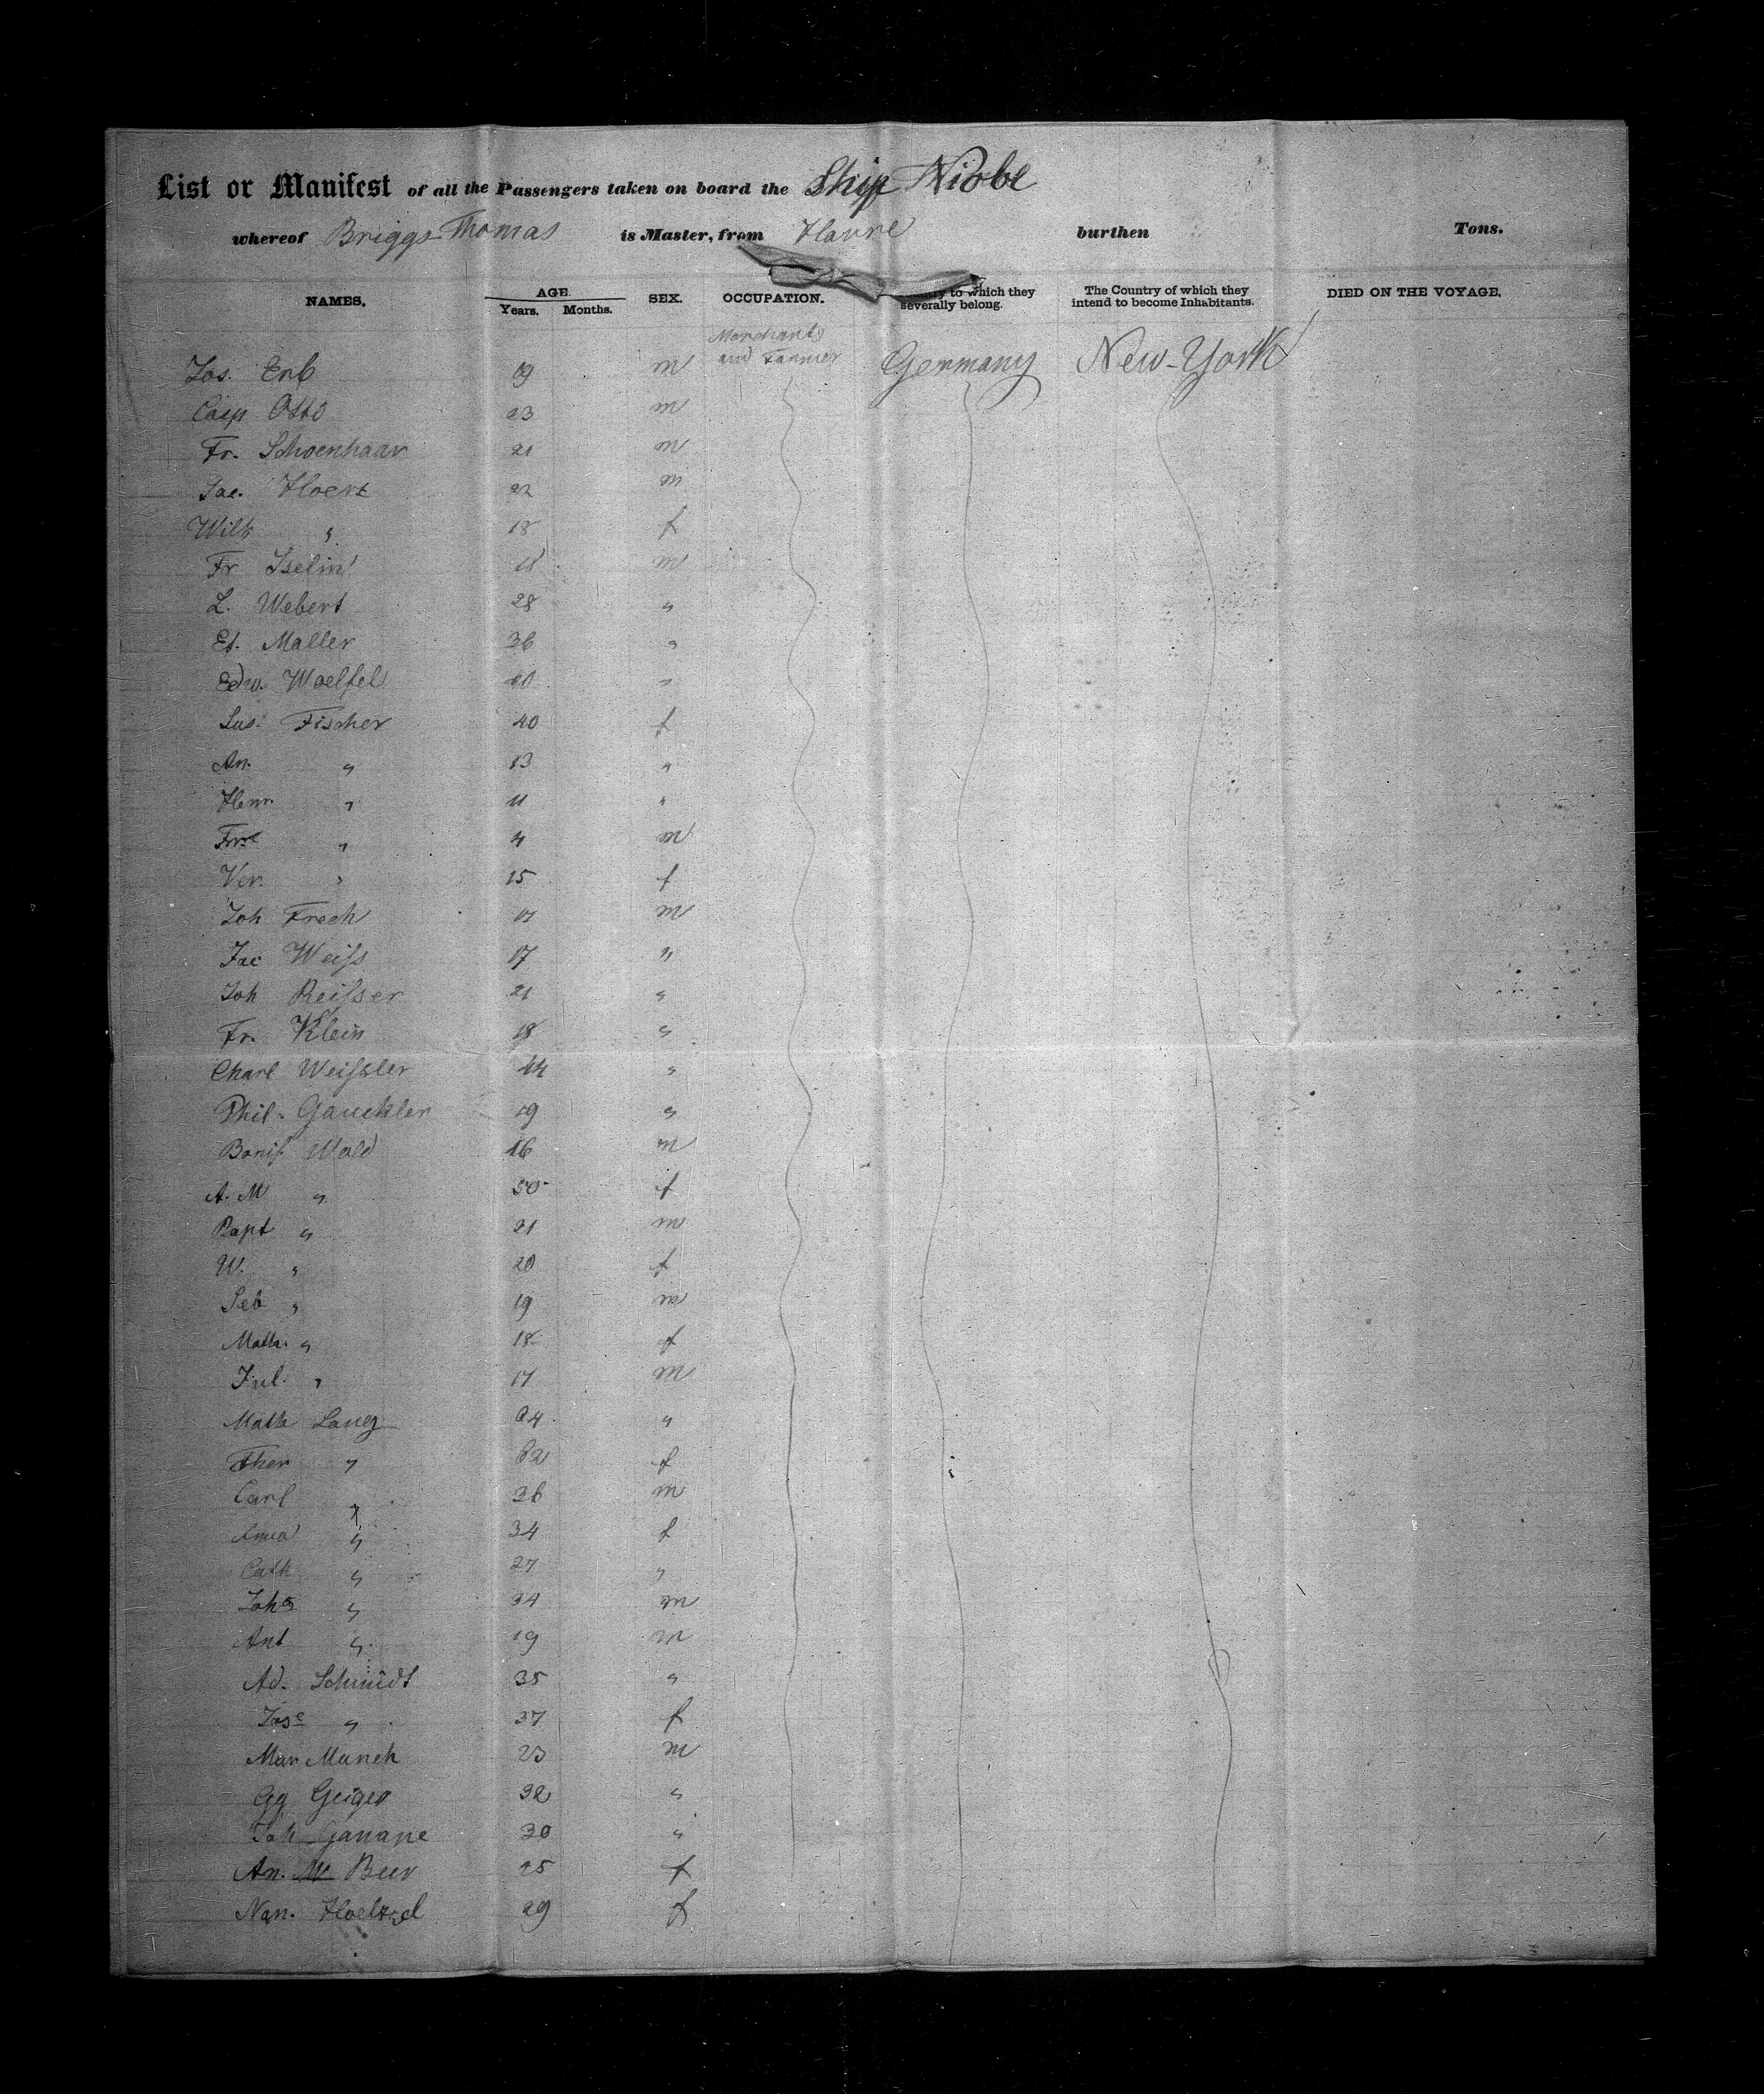 List or Manifest of all the Passengers taken on board the Ship Niobe
whereof Briggs Thomas is Master, from Havre burthen Tons.
NAMES. AGE. Years. Months. SEX. OCCUPATION. Country to which they severally belong. The Country of which they intend to become Inhabitants. DIED ON THE VOYAGE.
Merchants
Jos. Erb 19 m and Farmer Germany New-York
Casp Otto 23 m
Fr. Schoenhaar 21 m
Jac. 22 m
Wilh " 18 f
Fr Iselin m
L. Webert 28 "
Et. Maller 36 "
Edw. Woelfel "
Sus. Fischer 40 f
An. " 13 "
Henr. " 11 "
" 4 m
Ver. " 15 f
Joh Frech 17 m
Jac Weiſs 17 "
Joh Reiſser 21 "
Fr. Klein 18 "
Charl Weiſsler 44 "
Phil. Gauckler 19 "
Wald 16 m
A. M " 50 f
Bapt " 21 m
W. " 20 f
Seb " 19 m
Math. " 18 f
Jul. " 17 m
Math Lang 64 "
Ther " 62 f
Carl " 36 m
Anna " 34 f
Cath " 27 "
Johs " 34 m
Ant " 19 m
Ad. Schmidt 35 "
Jose " 37 f
Mar Munch 23 m
Gg Geiger 32 "
Joh 30 "
An. M. Beer 25 f
Nan. Hoeltzel 29 f